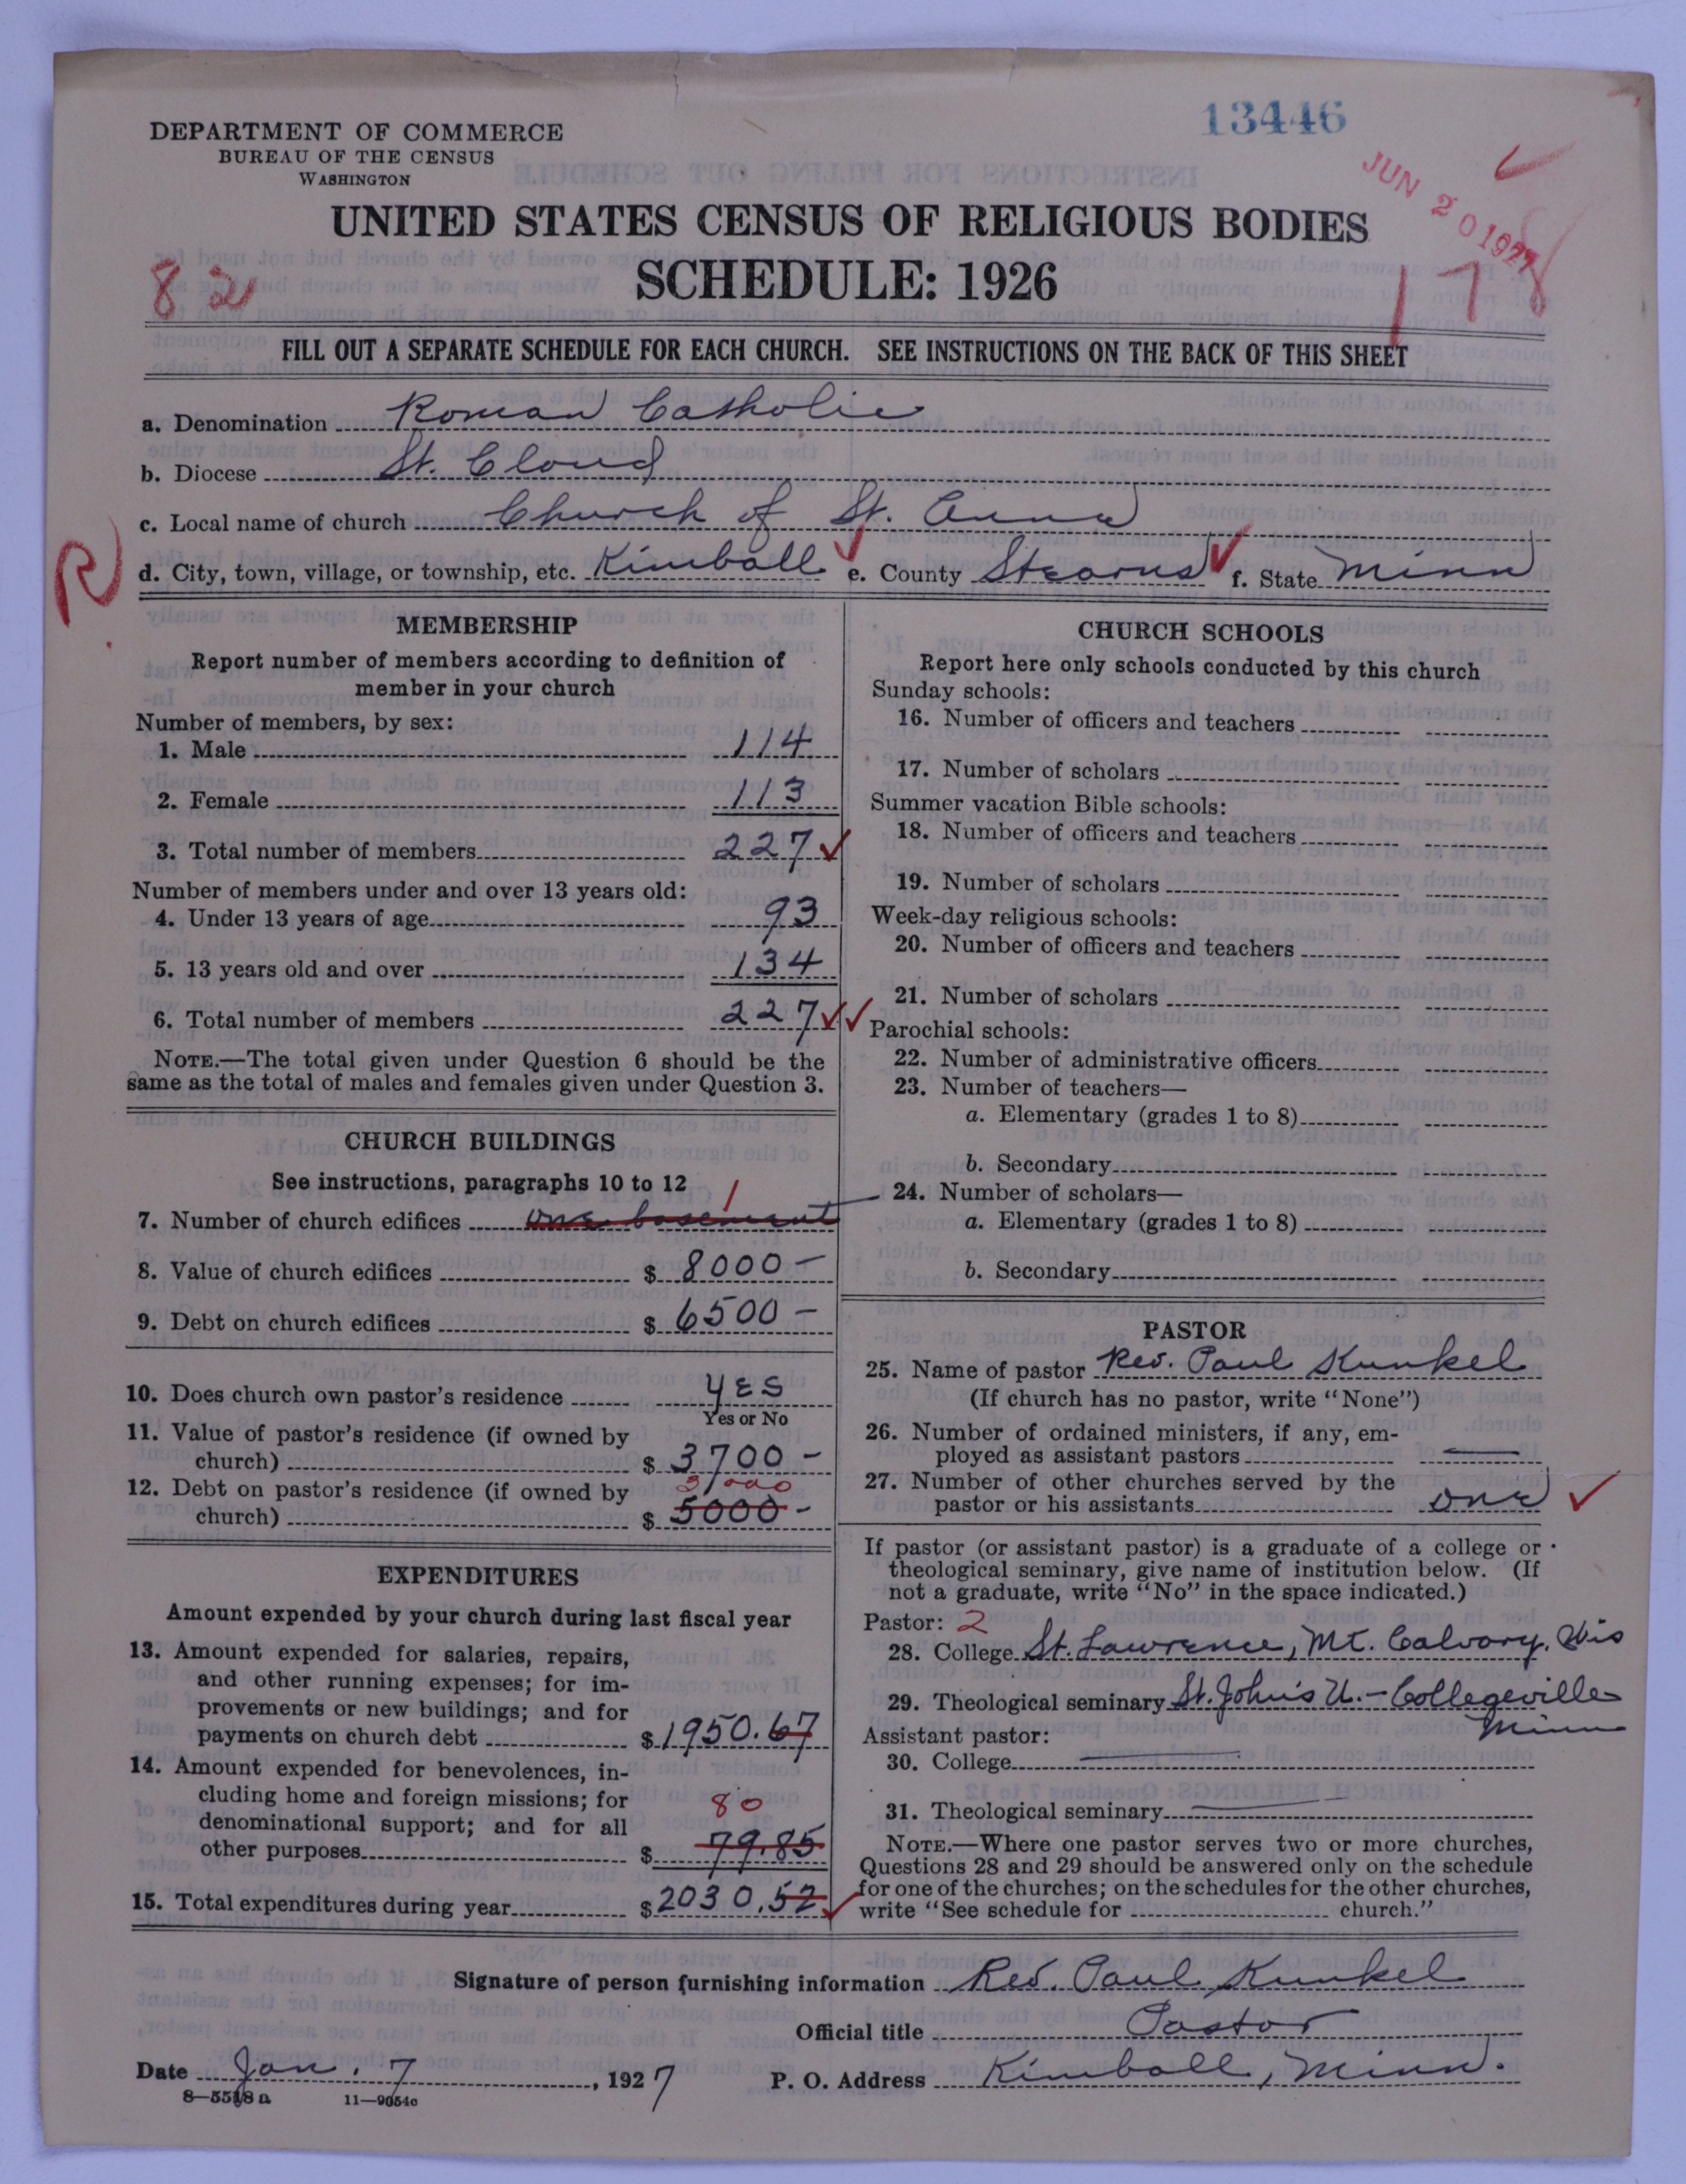 13446
DEPARTMENT OF COMMERCE
BUREAU OF THE CENSUS
WASHINGTON
JUN 20 1927
UNITED STATES CENSUS OF RELIGIOUS BODIES
82
SCHEDULE: 1926
178
FILL OUT A SEPARATE SCHEDULE FOR EACH CHURCH. SEE INSTRUCTIONS ON THE BACK OF THIS SHEET
a. Denomination Roman Catholic
b. Diocese St. Cloud
c. Local name of church Church of St. Anna
R
d. City, town, village, or township, etc. Kimball ✓ e. County Stearns ✓ f. State Minn
MEMBERSHIP
Report number of members according to definition of
member in your church
Number of members, by sex:
1. Male 114
2. Female 113
3. Total number of members 227 ✓
Number of members under and over 13 years old:
4. Under 13 years of age 93
5. 13 years old and over 134
6. Total number of members 227 ✓✓
NOTE.—The total given under Question 6 should be the
same as the total of males and females given under Question 3.
CHURCH BUILDINGS
See instructions, paragraphs 10 to 12
1
7. Number of church edifices one basement
8. Value of church edifices $ 8000 –
9. Debt on church edifices $ 6500 –
10. Does church own pastor's residence YES
Yes or No
11. Value of pastor's residence (if owned by
church) $ 3700 –
12. Debt on pastor's residence (if owned by
church) $ 5000 –
EXPENDITURES
Amount expended by your church during last fiscal year
13. Amount expended for salaries, repairs,
and other running expenses; for im-
provements or new buildings; and for
payments on church debt $ 1950.67
14. Amount expended for benevolences, in-
cluding home and foreign missions; for
80
denominational support; and for all
other purposes $ 79.85
15. Total expenditures during year $ 2030.52 ✓
CHURCH SCHOOLS
Report here only schools conducted by this church
Sunday schools:
16. Number of officers and teachers
17. Number of scholars
Summer vacation Bible schools:
18. Number of officers and teachers
19. Number of scholars
Week-day religious schools:
20. Number of officers and teachers
21. Number of scholars
Parochial schools:
22. Number of administrative officers
23. Number of teachers—
a. Elementary (grades 1 to 8)
b. Secondary
24. Number of scholars—
a. Elementary (grades 1 to 8)
b. Secondary
PASTOR
25. Name of pastor Rev. Paul Kunkel
(If church has no pastor, write "None")
26. Number of ordained ministers, if any, em-
ployed as assistant pastors —
27. Number of other churches served by the
pastor or his assistants one ✓
If pastor (or assistant pastor) is a graduate of a college or
theological seminary, give name of institution below. (If
not a graduate, write "No" in the space indicated.)
Pastor: 2
28. College St. Lawrence, Mt. Calvary, Wis
29. Theological seminary St. John's U. – Collegeville
Minn
Assistant pastor:
30. College —
31. Theological seminary —
NOTE.—Where one pastor serves two or more churches,
Questions 28 and 29 should be answered only on the schedule
for one of the churches; on the schedules for the other churches,
write "See schedule for church."
Signature of person furnishing information Rev. Paul Kunkel
Official title Pastor
Date Jan. 7, 1927
P. O. Address Kimball, Minn.
8—5518 a 11—9054c